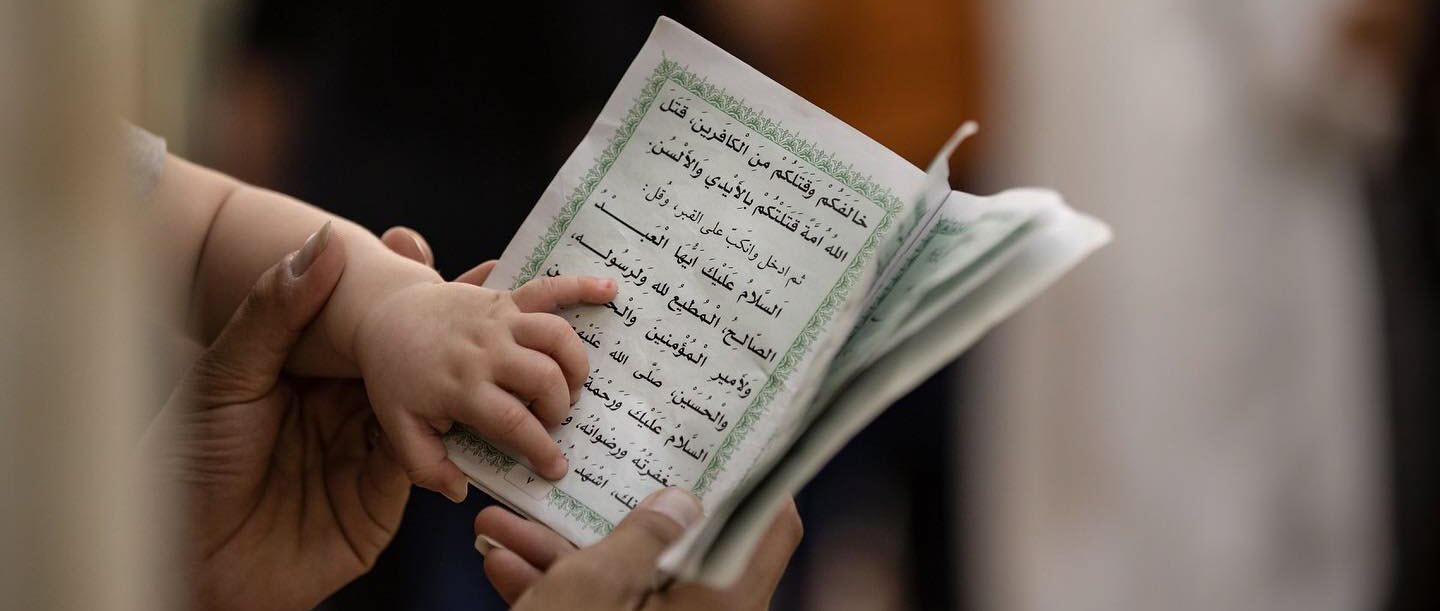 خالَفَكُمْ وَقَتَلَكُمْ مِنَ الْكافِرينَ، قَتَلَ
اللهُ اُمَّةً قَتَلَتْكُمْ بِالأَيْدي وَالأَلْسُنِ.
ثم ادخل وانكبَّ على القبر، وقُل:
اَلسَّلامُ عَلَيْكَ اَيُّهَا الْعَبْـــــدُ
الصّالِـحُ، الْمُطيعُ للهِ وَلِرَسُولِــهِ،
وَلأَميرِ الْمُؤْمِنينَ
وَالْحُسَيْنِ، صَلَّى اللهُ عَلَيْهِمْ
اَلسَّلامُ عَلَيْكَ وَرَحْمَةُ
مَغْفِرَتُهُ وَرِضْوانُهُ،
اَشْهَدُ
٧